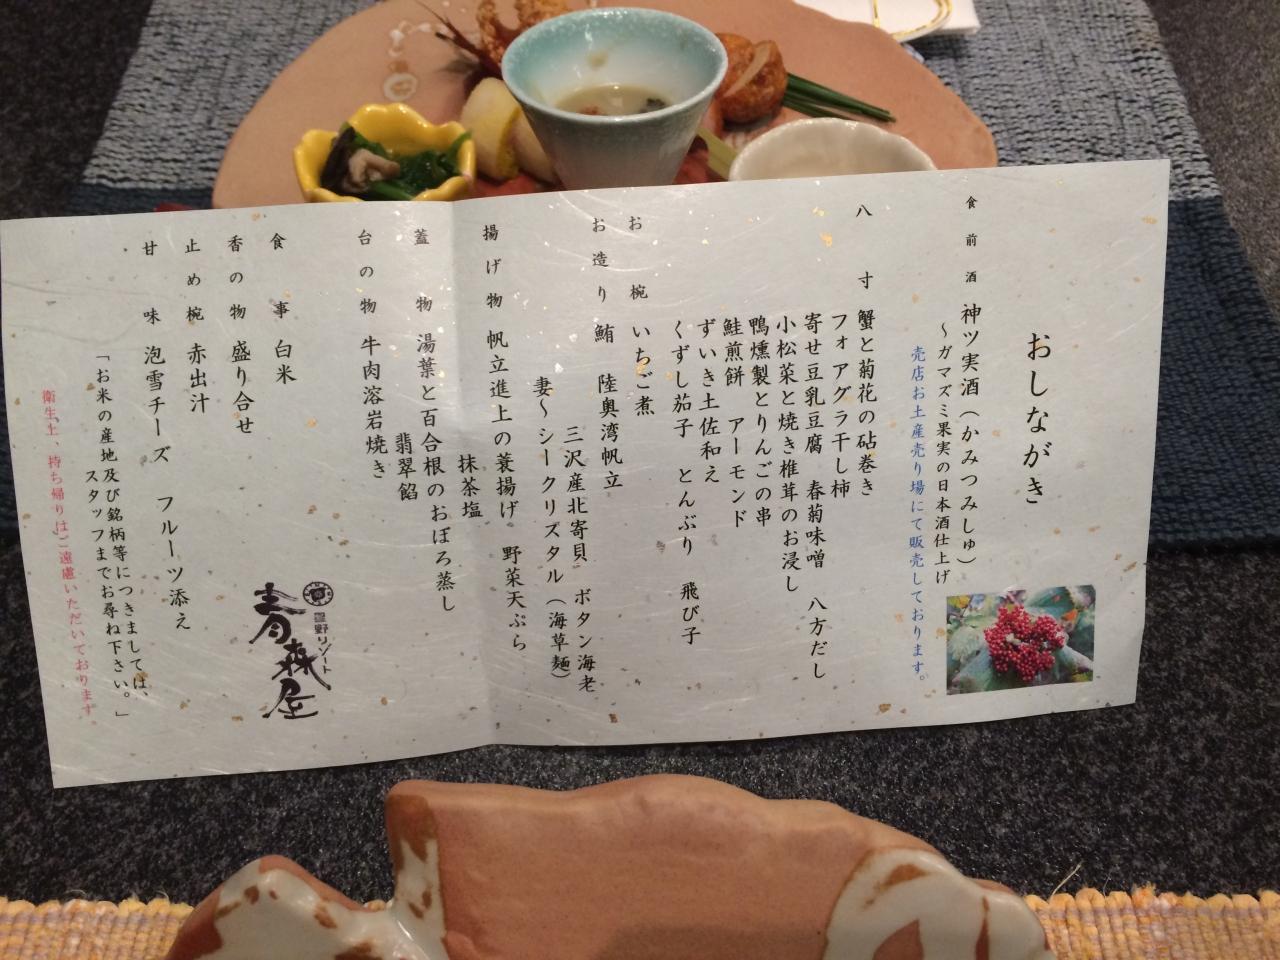 おしながき
食前酒 神ツ実酒（かみつみしゅ）
～ガマズミ果実の日本酒仕上げ
売店お土産売り場にて販売しております。
八寸 蟹と菊花の砧巻き
フォアグラ干し柿
寄せ豆乳豆腐 春菊味噌 八方だし
小松菜と焼き椎茸のお浸し
鴨燻製とりんごの串
鮭煎餅 アーモンド
ずいき土佐和え
くずし茄子 とんぶり 飛び子
お椀 いちご煮
お造り 鮪 陸奥湾帆立
三沢産北寄貝 ボタン海老
妻～シークリスタル（海草麺）
揚げ物 帆立進上の蓑揚げ 野菜天ぷら
抹茶塩
蓋物 湯葉と百合根のおぼろ蒸し
翡翠餡
台の物 牛肉溶岩焼き
食事 白米
香の物 盛り合せ
止め椀 赤出汁
甘味 泡雪チーズ フルーツ添え
「お米の産地及び銘柄等につきましては、
スタッフまでお尋ね下さい。」
衛生上、持ち帰りはご遠慮いただいております。
星野リゾート
青森屋